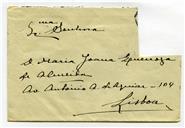 Exma Senhora
D. Maria Joana Espinoza
de Almeida
Av. António A. de Aguiar - 104
Lisboa